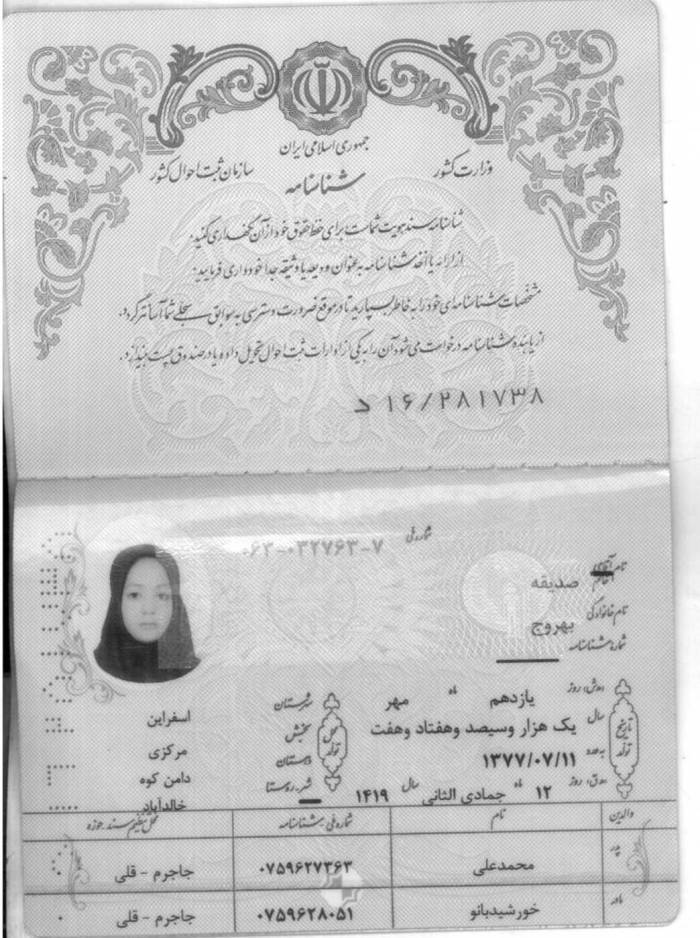 جمهوری اسلامی ایران
وزارت کشور
سازمان ثبت احوال کشور
شناسنامه
شناسنامه سند هویت شماست برای حفظ حقوق خود از آن نگهداری کنید.
از ارائه یا اخذ شناسنامه به عنوان ودیعه یا وثیقه جدا خودداری فرمایید.
مشخصات شناسنامه‌ای خود را به خاطر بسپارید تا در موقع ضرورت دسترسی به سوابق سجلی شما آسانتر گردد.
از یابنده شناسنامه درخواست می‌شود آن را به یکی از ادارات ثبت احوال تحویل داده یا در صندوق پست بیندازد.
د ۱۶/۲۸۱۷۳۸
شماره ملی
۰۶۳-۰۳۲۷۶۳-۷
نام صدیقه
نام خانوادگی بهروج
شماره شناسنامه
تاریخ تولد
ه.ش، روز یازدهم ماه مهر
سال یک هزار وسیصد وهفتاد وهفت
به عدد ۱۳۷۷/۰۷/۱۱
ه.ق، روز ۱۲ ماه جمادی الثانی سال ۱۴۱۹
محل تولد
شهرستان اسفراین
بخش مرکزی
دهستان دامن کوه
شهر-روستا خالدآباد
والدین نام شماره ملی-شناسنامه محل تنظیم سند-حوزه
پدر محمدعلی ۰۷۵۹۶۲۷۳۶۳ جاجرم - قلی
مادر خورشیدبانو ۰۷۵۹۶۲۸۰۵۱ جاجرم - قلی